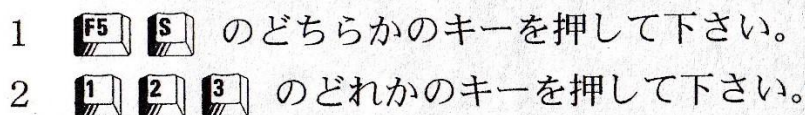 1 F5 S のどちらかのキーを押して下さい。
2 1 2 3 のどれかのキーを押して下さい。